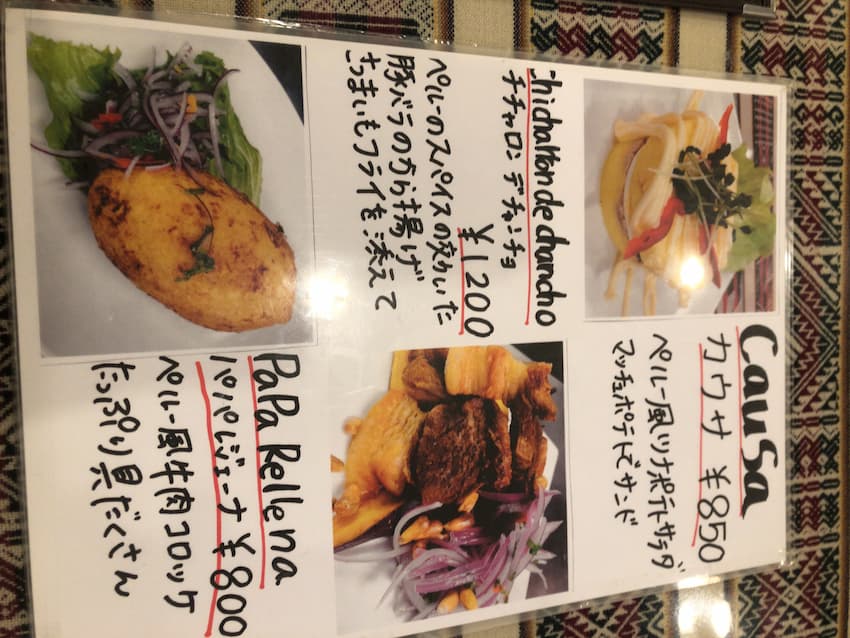 Causa
カウサ ¥850
ペルー風ツナポテトサラダ
マッチュポテトでサンド
chicharron de chancho
チチャロン デ チャンチョ
¥1200
ペルーのスパイスの効いた
豚バラのから揚げ
さつまいもフライを添えて
Papa Rellena
パパレジェーナ ¥800
ペルー風牛肉コロッケ
たっぷり具だくさん